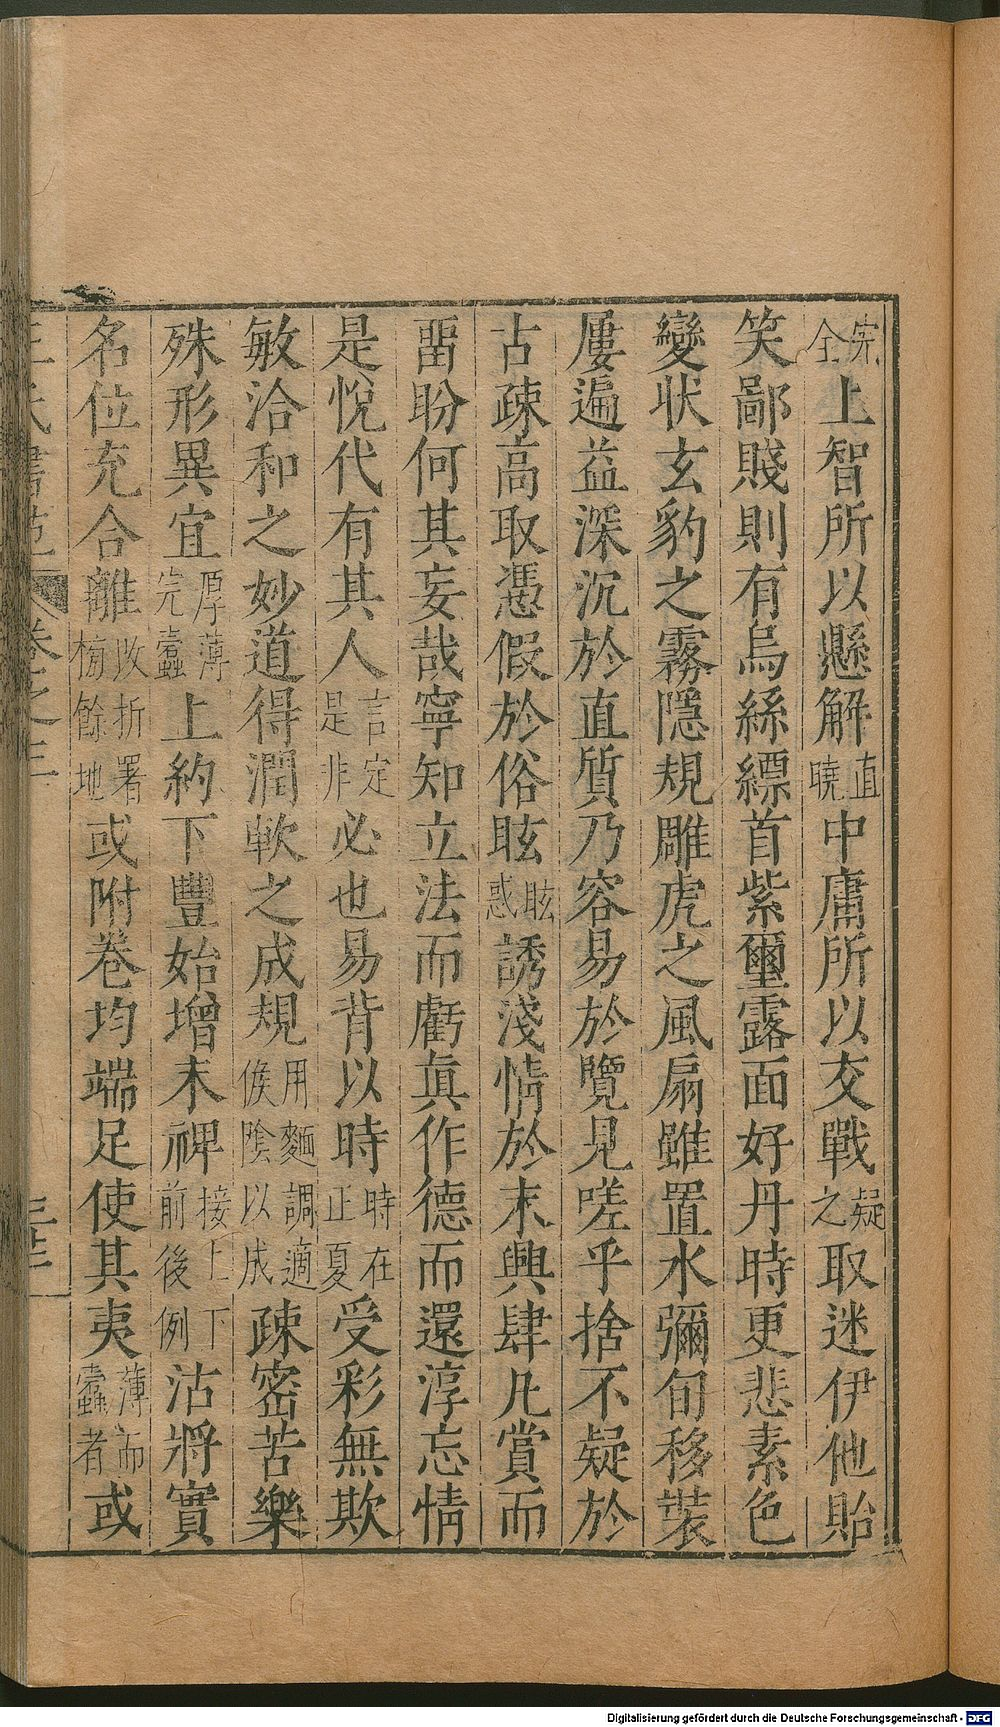 宋全上智所以懸解直曉中庸所以交戰疑之取迷伊他貽
笑鄙賤則有烏絲縹首紫璽露面好丹時更悲素色
變状玄豹之霧隱規雕虎之風扇雖置水彌旬移裝
屢遍益深沉於直質乃容易於覽見嗟乎捨不疑於
古疎高取憑假於俗眩眩惑誘淺情於末興肆凡賞而
畱盼何其妄哉寧知立法而虧眞作德而還淳忘情
是悅代有其人言定是非必也易背以時時在正夏受彩無欺
敏洽和之妙道得潤軟之成規用麵調適候陰以成疎密苦樂
殊形異宜厚薄完蠹上約下豐始增末裨接上下前後例沽將實
名位充合離收折署椀餘地或附卷均端足使其夷薄而蠹者或
王氏書苑 卷之三
Digitalisierung gefördert durch die Deutsche Forschungsgemeinschaft - DFG